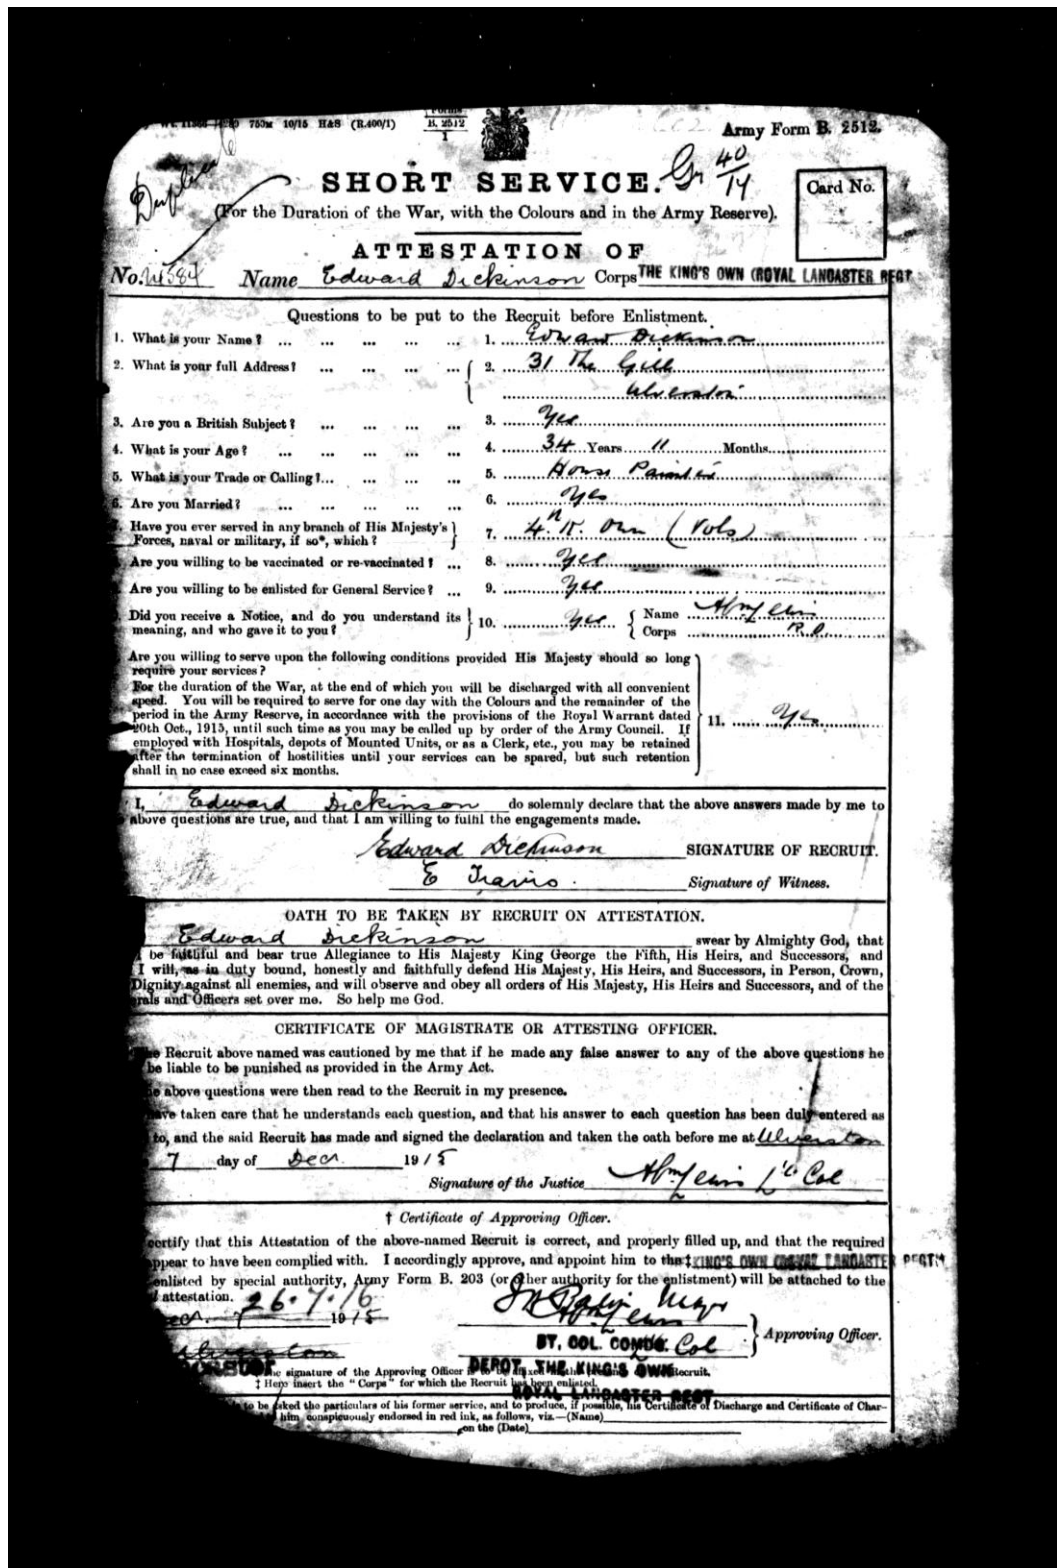 750M 10/15 H&S (R.400/1) Forms B. 2512 1
Army Form B. 2512.
Duplicate
SHORT SERVICE. Gr 40/14
Card No.
(For the Duration of the War, with the Colours and in the Army Reserve).
ATTESTATION OF
No. Name Edward Dickinson Corps THE KING'S OWN (ROYAL LANCASTER REGT
Questions to be put to the Recruit before Enlistment.
1. What is your Name? ... ... ... ... ... 1. Edward Dickinson
2. What is your full Address? ... ... ... ... { 2. 31 The Gill
Ulverston
3. Are you a British Subject? ... ... ... ... 3. Yes
4. What is your Age? ... ... ... ... ... 4. 34 Years 11 Months
5. What is your Trade or Calling?... ... ... ... 5. House Painter
6. Are you Married? ... ... ... ... ... 6. Yes
Have you ever served in any branch of His Majesty's } 7. 4th K. Own (Vols)
Forces, naval or military, if so*, which?
Are you willing to be vaccinated or re-vaccinated? ... 8. Yes
Are you willing to be enlisted for General Service? ... 9. Yes
Did you receive a Notice, and do you understand its } 10. Yes { Name
meaning, and who gave it to you? Corps R.O.
Are you willing to serve upon the following conditions provided His Majesty should so long
require your services?
For the duration of the War, at the end of which you will be discharged with all convenient
speed. You will be required to serve for one day with the Colours and the remainder of the
period in the Army Reserve, in accordance with the provisions of the Royal Warrant dated } 11. Yes
20th Oct., 1915, until such time as you may be called up by order of the Army Council. If
employed with Hospitals, depots of Mounted Units, or as a Clerk, etc., you may be retained
after the termination of hostilities until your services can be spared, but such retention
shall in no case exceed six months.
I, Edward Dickinson do solemnly declare that the above answers made by me to
above questions are true, and that I am willing to fulfil the engagements made.
Edward Dickinson SIGNATURE OF RECRUIT.
E Travis. Signature of Witness.
OATH TO BE TAKEN BY RECRUIT ON ATTESTATION.
Edward Dickinson swear by Almighty God, that
be faithful and bear true Allegiance to His Majesty King George the Fifth, His Heirs, and Successors, and
I will, as in duty bound, honestly and faithfully defend His Majesty, His Heirs, and Successors, in Person, Crown,
Dignity against all enemies, and will observe and obey all orders of His Majesty, His Heirs and Successors, and of the
and Officers set over me. So help me God.
CERTIFICATE OF MAGISTRATE OR ATTESTING OFFICER.
Recruit above named was cautioned by me that if he made any false answer to any of the above questions he
be liable to be punished as provided in the Army Act.
above questions were then read to the Recruit in my presence.
taken care that he understands each question, and that his answer to each question has been duly entered as
to, and the said Recruit has made and signed the declaration and taken the oath before me at Ulverston
7 day of Decr 1915
Signature of the Justice Lt Col
† Certificate of Approving Officer.
certify that this Attestation of the above-named Recruit is correct, and properly filled up, and that the required
appear to have been complied with. I accordingly approve, and appoint him to the‡ KING'S OWN (ROYAL LANCASTER REGT)
enlisted by special authority, Army Form B. 203 (or other authority for the enlistment) will be attached to the
attestation. 26.7.16
Decr 7 1915 } Approving Officer.
Ulverston BT. COL. COMDG. Col
The signature of the Approving Officer is to be Recruit.
DEPOT. THE KING'S OWN
‡ Here insert the "Corps" for which the Recruit has been enlisted.
ROYAL LANCASTER REGT
to be asked the particulars of his former service, and to produce, if possible, his Certificate of Discharge and Certificate of Char-
him conspicuously endorsed in red ink, as follows, viz.—(Name)
on the (Date)